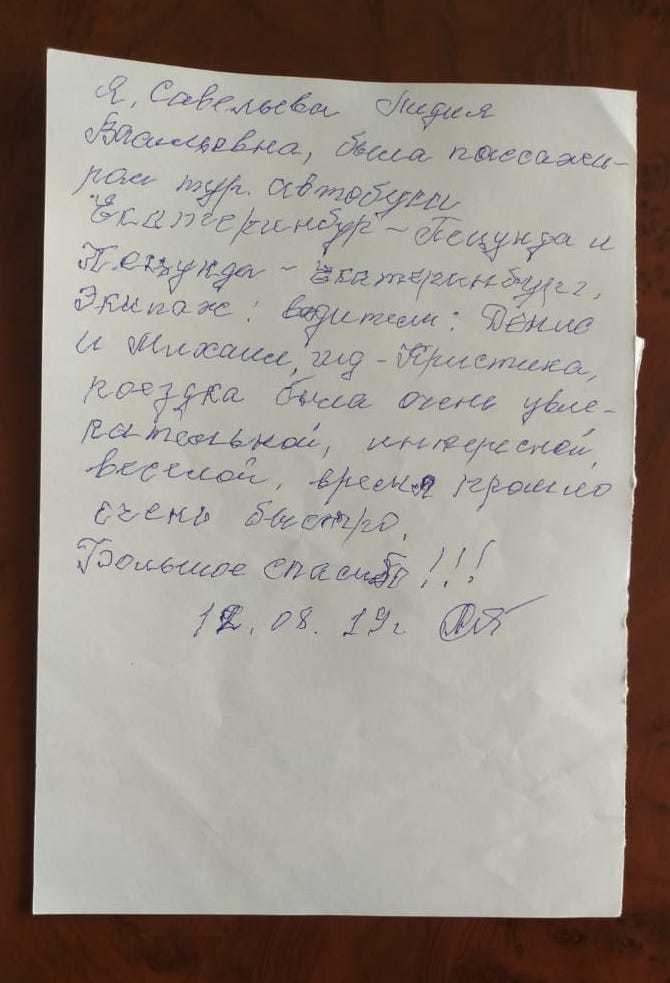 Я, Савельева Лидия
Васильевна, была пассажи-
ром тур. автобуса
Екатеринбур - Пецунда и
Пецунда - Екатеринбург,
Экипаж: водители: Денис
и Михаил, гид - Кристина,
поездка была очень увле-
кательной, интересной,
веселой, время прошло
очень быстро.
Большое спасибо!!!
12.08.19г